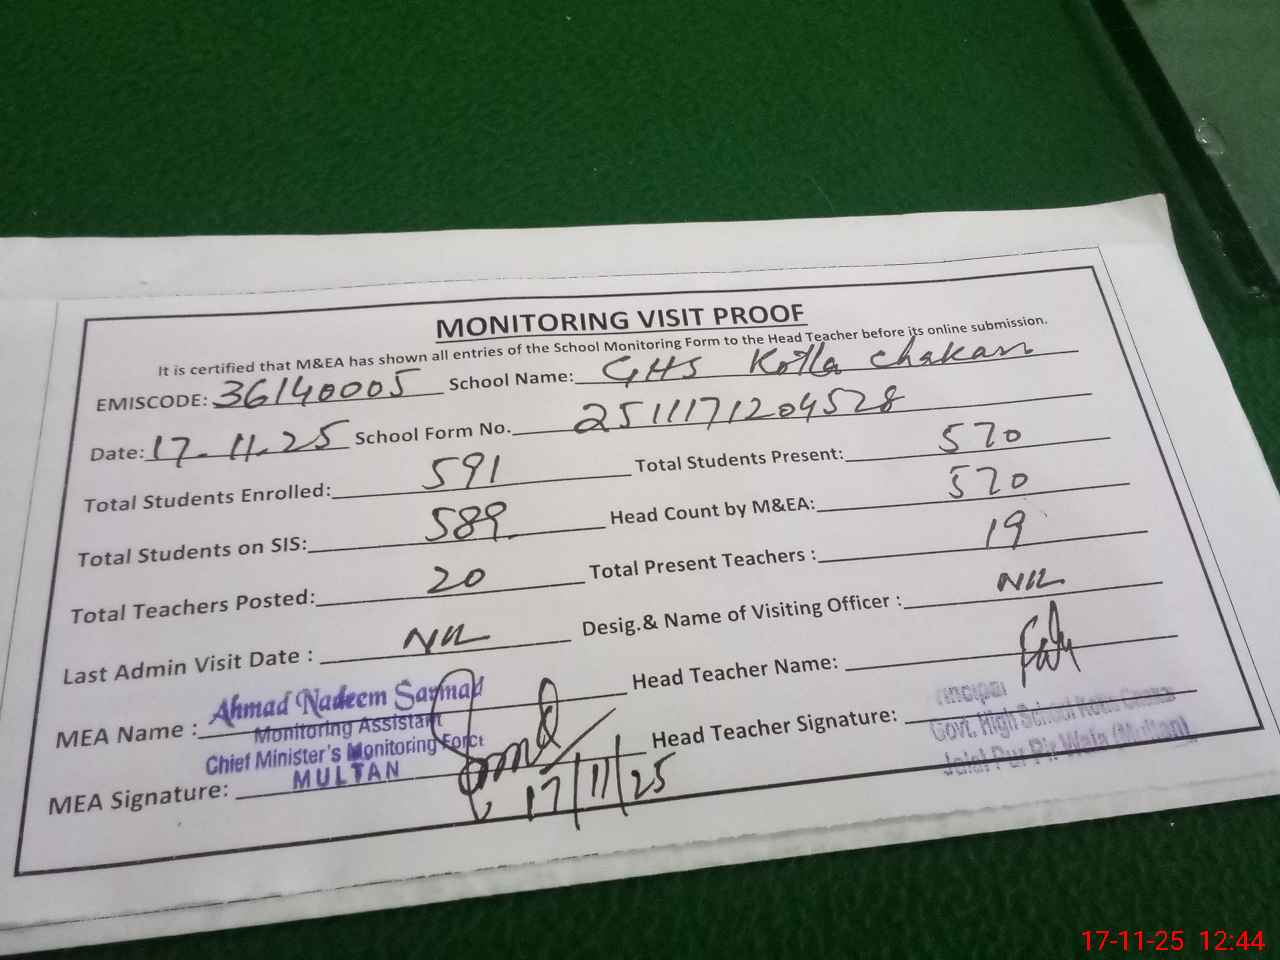 MONITORING VISIT PROOF
It is certified that M&EA has shown all entries of the School Monitoring Form to the Head Teacher before its online submission.
EMISCODE: 36140005 School Name: GHS Kotla Chakar
Date: 17.11.25 School Form No. 25111171204528
Total Students Enrolled: 591 Total Students Present: 570
Total Students on SIS: 589 Head Count by M&EA: 570
Total Teachers Posted: 20 Total Present Teachers : 19
Last Admin Visit Date : NIL Desig.& Name of Visiting Officer : NIL
MEA Name : Ahmad Nadeem Sarmad Head Teacher Name:
Monitoring Assistant
Chief Minister's Monitoring Force
MULTAN
MEA Signature: 17/11/25 Head Teacher Signature:
Govt. High School Kotla
Jalal Pur Pir Wala (Multan)
17-11-25 12:44